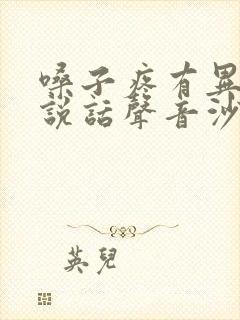 嗓子疼有異
說話聲音沙
英兒